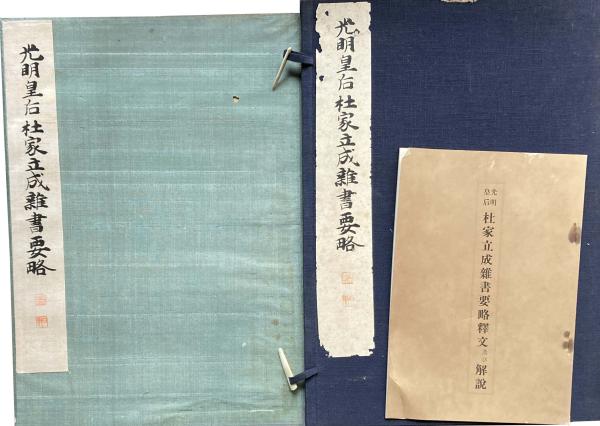 光明皇后杜家立成雜書要略
光明皇后杜家立成雜書要略
光明
皇后
杜家立成雜書要略釋文及び解說